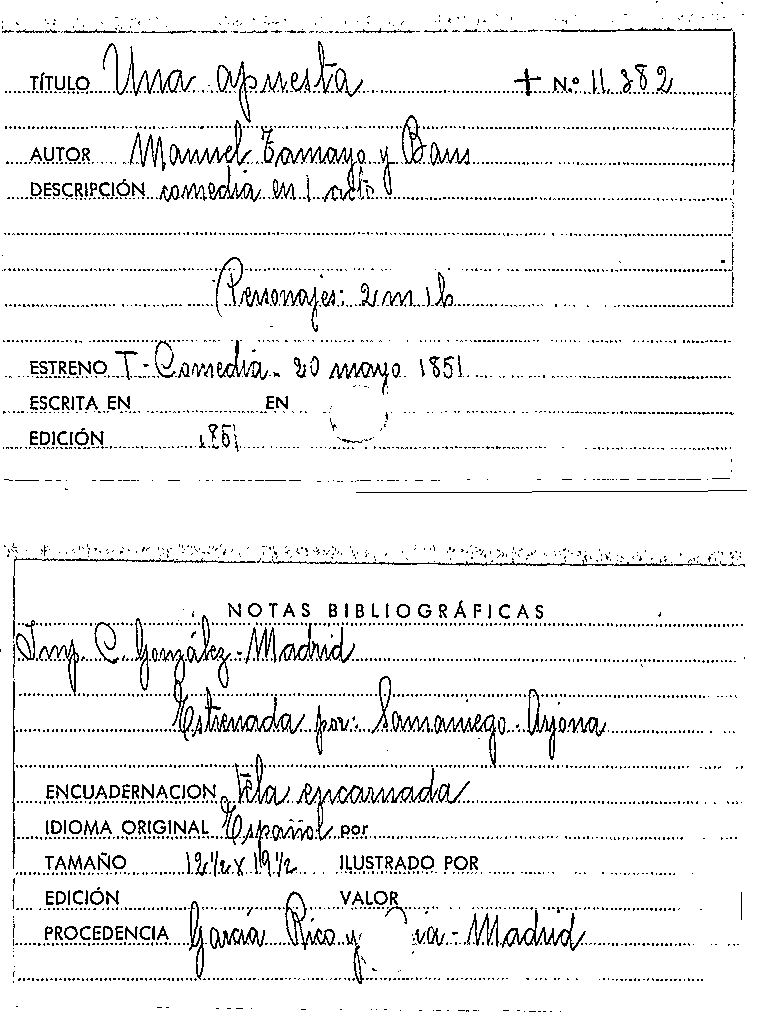 TÍTULO Una apuesta + N.º 11.382
AUTOR Manuel Tamayo y Baus
DESCRIPCIÓN comedia en 1 acto
Personajes: 2 m 1 h
ESTRENO T - Comedia - 20 mayo 1851
ESCRITA EN EN
EDICIÓN 1851
NOTAS BIBLIOGRÁFICAS
Imp. C. González - Madrid
Estrenada por: Samaniego - Arjona
ENCUADERNACION Tela encarnada
IDIOMA ORIGINAL Español por
TAMAÑO 12 1/2 x 19 1/2 ILUSTRADO POR
EDICIÓN VALOR
PROCEDENCIA García Rico y - Madrid